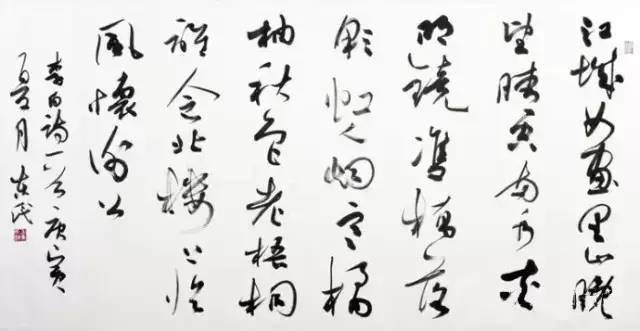 江城如畫里山晚
望晴空兩水夾
明鏡雙橋落
彩虹人烟寒橘
柚秋色老梧桐
誰念北樓上臨
風懷謝公
李白詩一首庚寅
夏月